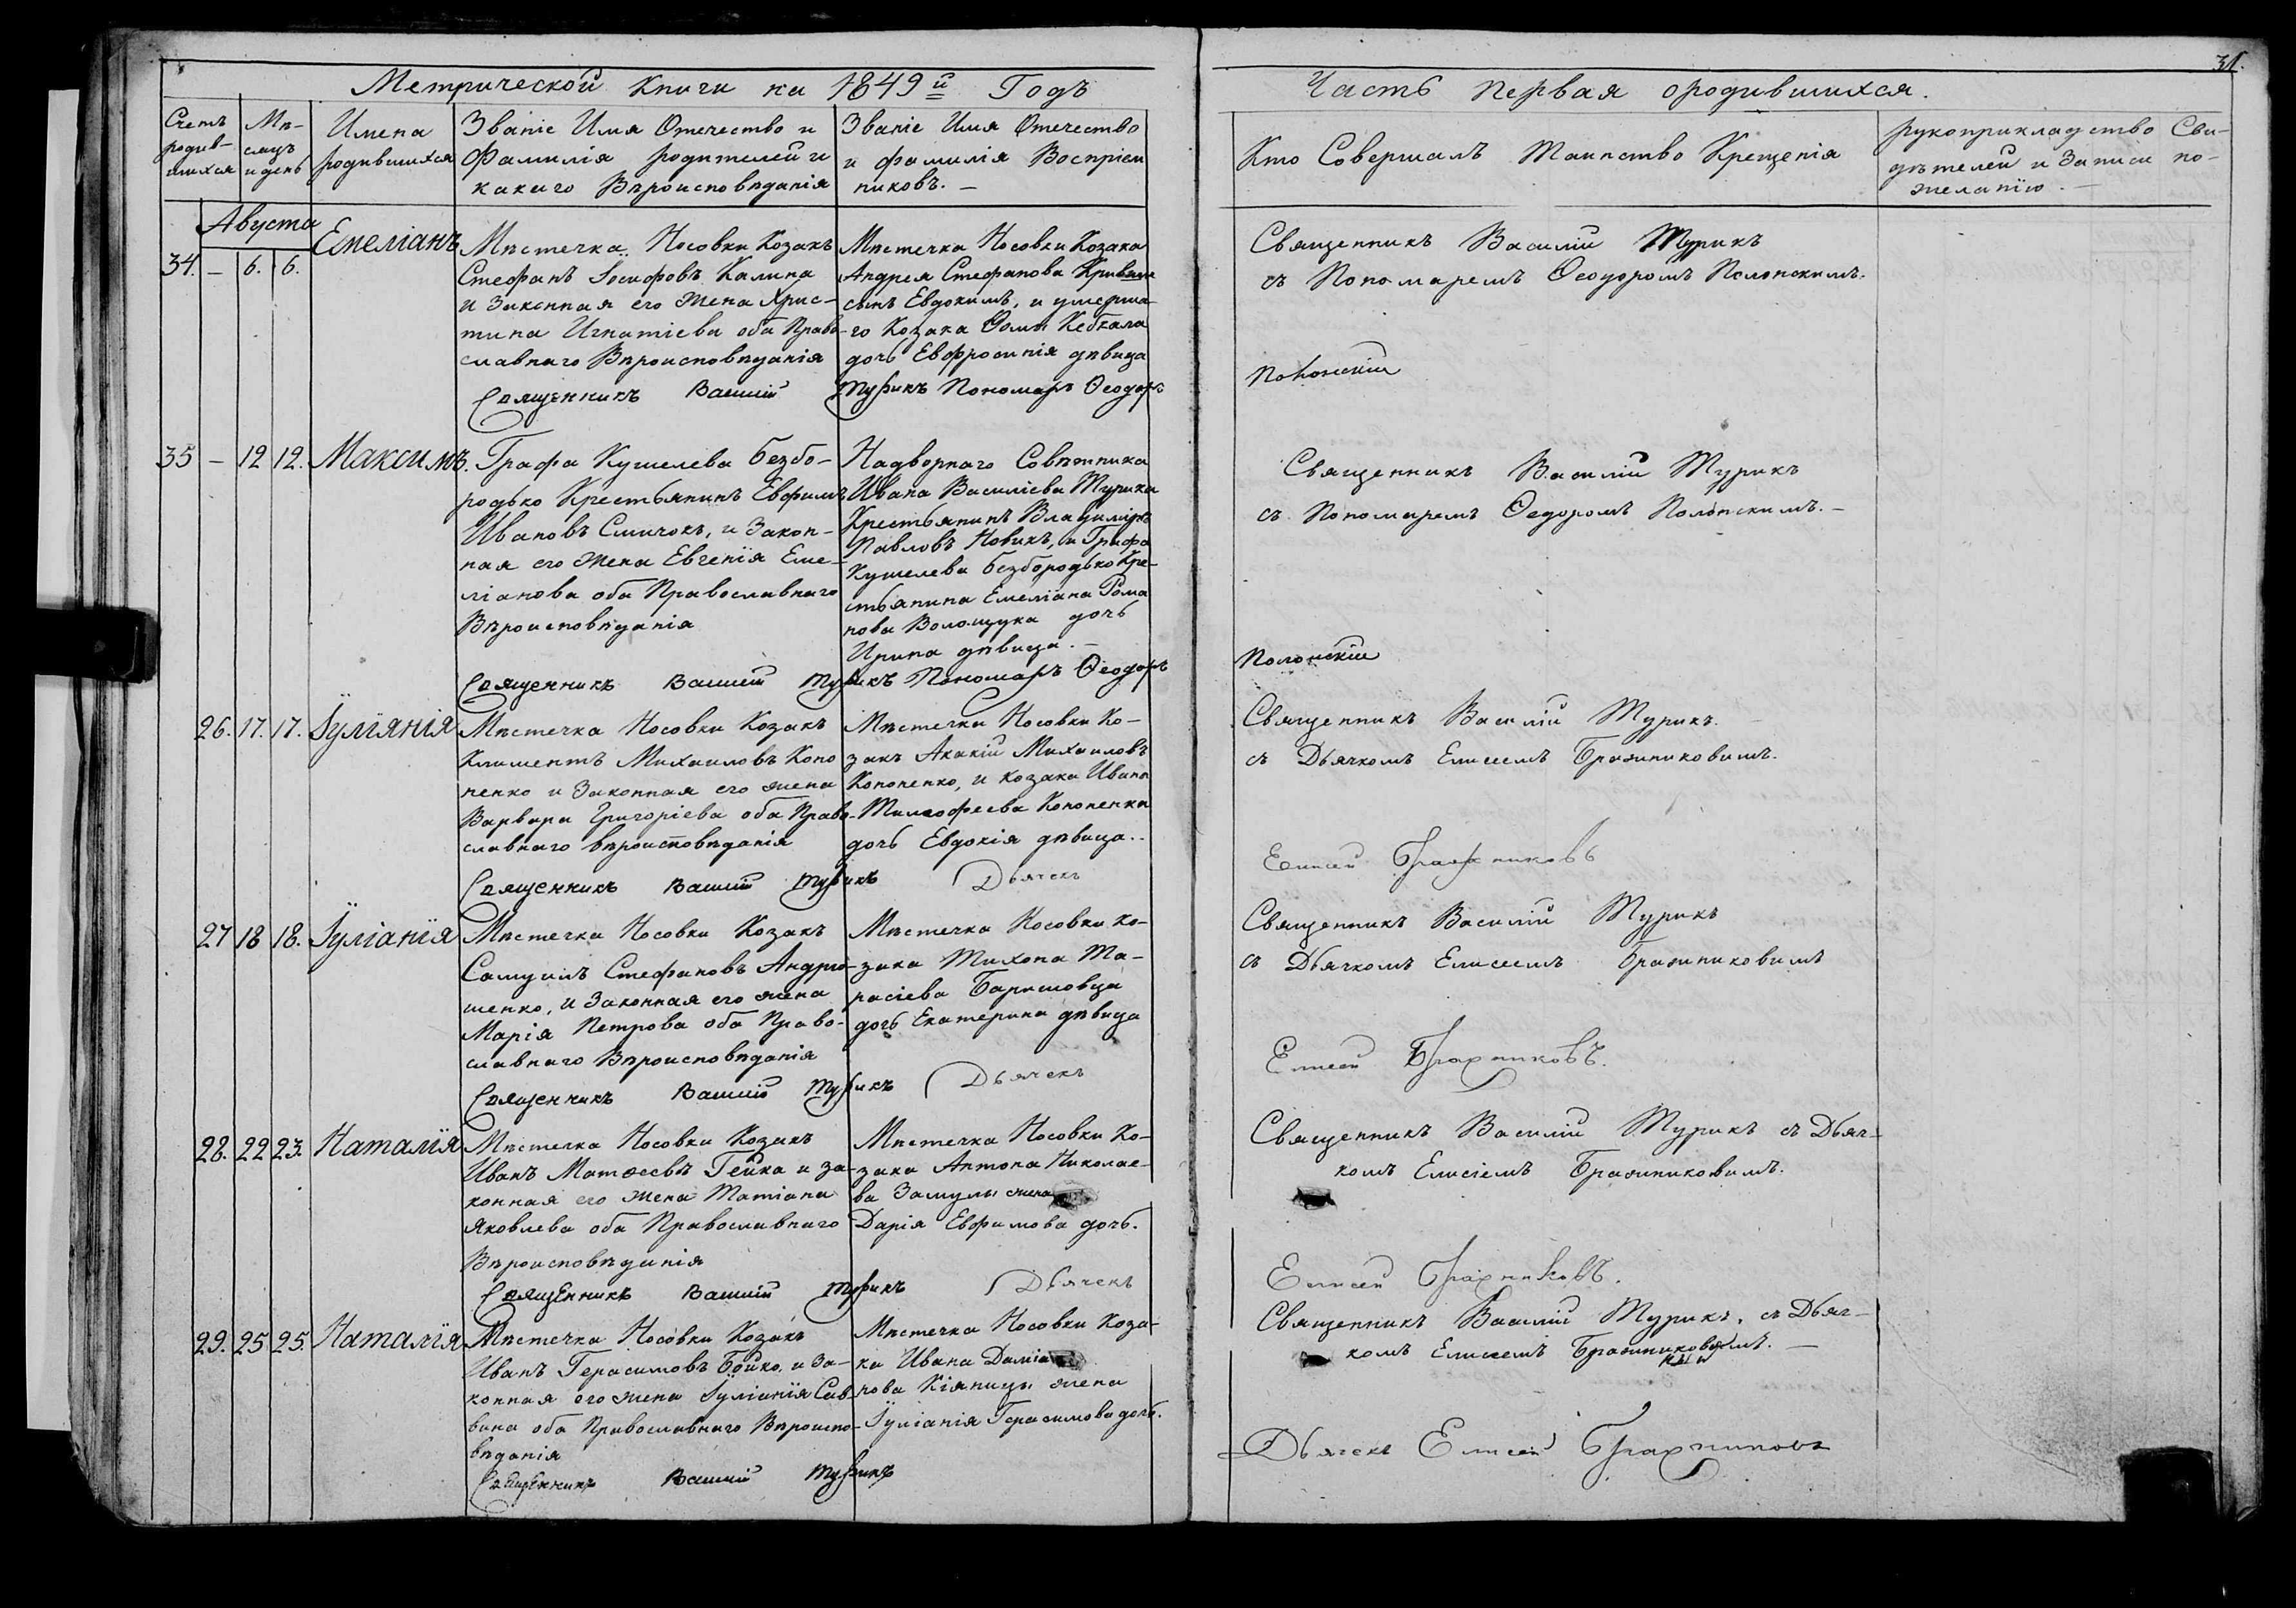 31.
Метрической Книги на 1849й Годъ
Часть Первая о родившихся.
Счетъ родив-шихся
Мѣ-сяцъ и день
Имена родившихся
Званіе Имя Отечество и
Фамилія родителей и
какого Вѣроисповѣданія
Званіе Имя Отечество
и фамилія Воспріем
никовъ. —
Кто Совершалъ Таинство Крещенія
рукоприкладство Сви-
дѣтелей и Записи по-
желанію. —
Августа
34. — 6. 6.
Емеліанъ
Мѣстечка Носовки Козакъ
Стефанъ Іосифовъ Калина
и Законная его Жена Хрис-
тина Игнатіева оба Право-
славнаго Вѣроисповѣданія
Мѣстечка Носовки Козака
Андрея Стефанова
сынъ Евдокимъ, и умерша-
го Козака Ѳомы Кебкала
дочь Евфросинія дѣвица
Священникъ Василій Турикъ
съ Пономаремъ Ѳеодоромъ Полонскимъ.
Священникъ Василій Турикъ Пономарь Ѳеодоръ
Полонскій
35 — 12 12.
Максимъ.
Графа Кушелева Безбо-
родько Крестьянинъ Евфимъ
Ивановъ Смичокъ, и Закон-
ная его Жена Евгенія Еме-
ліанова оба Православнаго
Вѣроисповѣданія
Надворнаго Совѣтника
Ивана Василіева Турика
Крестьянинъ Владиміръ
Павловъ Новикъ, и Графа
Кушелева Безбородько Кре-
стьянина Емеліана Рома
нова Волощука дочь
Ирина дѣвица. —
Священникъ Василій Турикъ
съ Пономаремъ Ѳедоромъ Полонскимъ. —
Священникъ Василій Турикъ Пономарь Ѳеодоръ
Полонскій
26. 17. 17.
Іуліянія
Мѣстечка Носовки Козакъ
Климентъ Михаиловъ Коно
ненко и Законная его жена
Варвара Григоріева оба Право-
славнаго вѣроисповѣданія
Мѣстечка Носовки Ко-
закъ Акакій Михаиловъ
Кононенко, и козака Ивана
Тимофеева Кононенка
дочь Евдокія дѣвица..
Священникъ Василій Турикъ.
съ Дьячкомъ Елисеемъ Бражниковимъ.
Священникъ Василій Турикъ Дьячекъ
Елисей Бражниковъ
27 18 18.
Іуліанія
Мѣстечка Носовки Козакъ
Самуилъ Стефановъ Андрю-
шенко, и Законная его жена
Марія Петрова оба Право-
славнаго Вѣроисповѣданія
Мѣстечка Носовки Ко-
зака Тихона Та-
расіева Баришовца
дочь Екатерина дѣвица
Священникъ Василій Турикъ
съ Дьячкомъ Елисеемъ Бражниковимъ
Священникъ Василій Турикъ Дьячекъ
Елисей Бражниковъ.
28. 22 23.
Наталія
Мѣстечка Носовки Козакъ
Иванъ Матѳеевъ Гейка и за-
конная его жена Татіана
Яковлева оба Православнаго
Вѣроисповѣданія
Мѣстечка Носовки Ко-
зака Антона Николае-
ва Замулы жена
Дарія Евфимова дочь.
Священникъ Василій Турикъ съ Дьяч-
комъ Елисіемъ Бражниковимъ.
Священникъ Василій Турикъ Дьячекъ
Елисей Бражниковъ.
29. 25 25.
Наталія
Мѣстечка Носовки Козакъ
Иванъ Герасимовъ Бойко, и За-
конная его жена Іуліанія Сав-
вина оба Православнаго Вѣроиспо-
вѣданія
Мѣстечка Носовки Коза-
ка Ивана Даміа
нова Кіяницы жена
Іуліанія Герасимова дочь.
Священникъ Василій Турикъ, съ Дьяч-
комъ Елисеемъ Бражниковимъ. —
Священникъ Василій Турикъ
Дьячекъ Елисей Бражниковъ